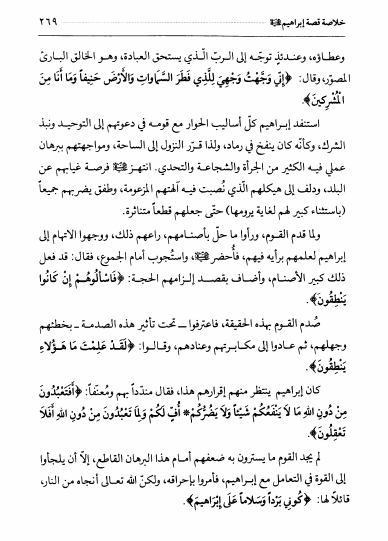 خلاصة قصة إبراهيم ﷺ ٢٦٩
وعطاؤه، وعندئذٍ توجّه إلى الربّ الّذي يستحق العبادة، وهو الخالق البارئ
المصوّر، وقال: ﴿إِنّي وَجَّهْتُ وَجْهِيَ لِلَّذِي فَطَرَ السَّمَاوَاتِ وَالأَرْضَ حَنِيفاً وَمَا أَنَا مِنَ
الْمُشْرِكِينَ﴾.
استنفد إبراهيم كلّ أساليب الحوار مع قومه في دعوتهم إلى التوحيد ونبذ
الشرك، وكأنّه كان ينفخ في رماد، ولذا قرّر النزول إلى الساحة، ومواجهتهم ببرهان
عملي فيه الكثير من الجرأة والشجاعة والتحدي. انتهز فرصة غيابهم عن
البلد، ودلف إلى هيكلهم الّذي نُصبت فيه آلهتهم المزعومة، وطفق يضربهم جميعاً
(باستثناء كبير لهم لغاية يرومها) حتّى جعلهم قطعاً متناثرة.
ولما قدم القوم، ورأوا ما حلّ بأصنامهم، راعهم ذلك، ووجهوا الاتهام إلى
إبراهيم لعلمهم برأيه فيهم، فأُحضر، واستُجوب أمام الجموع، فقال: قد فعل
ذلك كبير الأصنام، وأضاف بقصد إلزامهم الحجة: ﴿فَاسْأَلُوهُمْ إِنْ كَانُوا
يَنْطِقُونَ﴾.
صُدم القوم بهذه الحقيقة، فاعترفوا ـ تحت تأثير هذه الصدمة ـ بخطئهم
وجهلهم، ثم عادوا إلى مكابرتهم وعنادهم، وقالوا: ﴿لَقَدْ عَلِمْتَ مَا هَؤُلَاءِ
يَنْطِقُونَ﴾.
كان إبراهيم ينتظر منهم إقرارهم هذا، فقال مندّداً بهم ومُعنّفاً: ﴿أَفَتَعْبُدُونَ
مِنْ دُونِ اللهِ مَا لَا يَنْفَعُكُمْ شَيْئاً وَلَا يَضُرُّكُمْ* أُفٍّ لَكُمْ وَلِمَا تَعْبُدُونَ مِنْ دُونِ اللهِ أَفَلَا
تَعْقِلُونَ﴾.
لم يجد القوم ما يسترون به ضعفهم أمام هذا البرهان القاطع، إلّا أن يلجأوا
إلى القوة في التعامل مع إبراهيم، فأمروا بإحراقه، ولكنّ الله تعالى أنجاه من النار،
قائلاً لها: ﴿كُونِي بَرْداً وَسَلَاماً عَلَى إِبْرَاهِيمَ﴾.